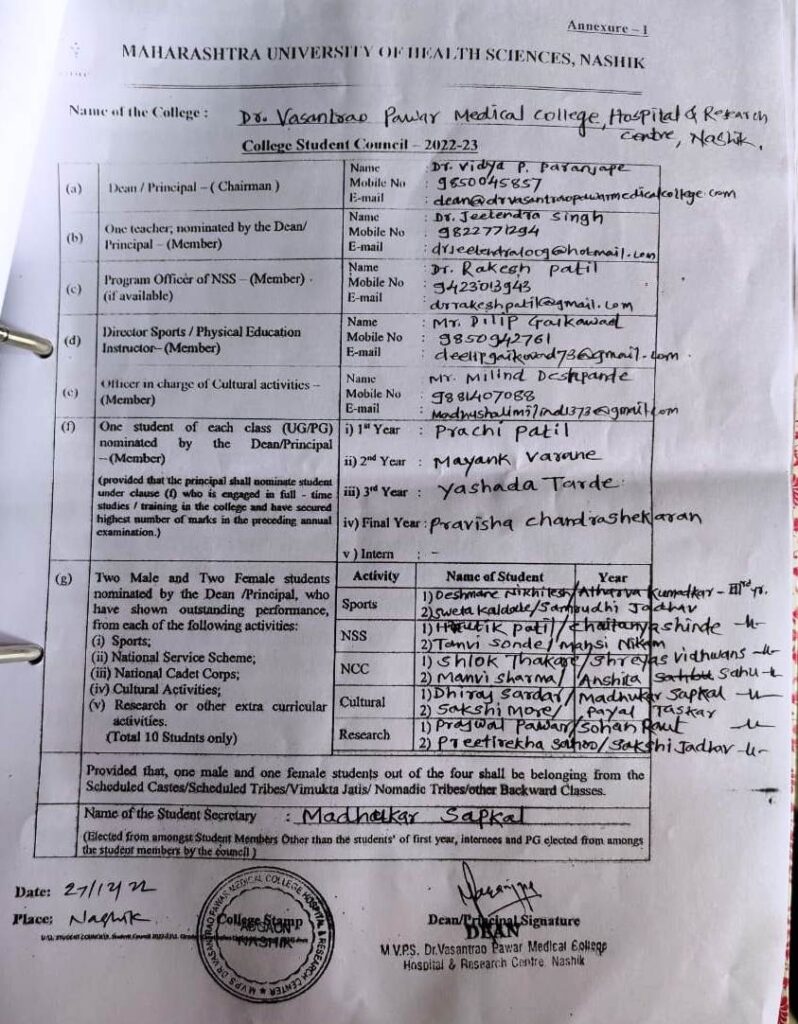 Annexure – I
MAHARASHTRA UNIVERSITY OF HEALTH SCIENCES, NASHIK
Name of the College : Dr. Vasantrao Pawar Medical College, Hospital & Research
Centre, Nashik.
College Student Council – 2022-23
(a) Dean / Principal – ( Chairman )
Name : Dr. Vidya P. Paranjape
Mobile No : 9850045857
E-mail : dean@drvasantraopawarmedicalcollege.com
(b) One teacher, nominated by the Dean/
Principal – (Member)
Name : Dr. Jeetendra Singh
Mobile No : 9822771294
E-mail :
(c) Program Officer of NSS – (Member)
(if available)
Name : Dr. Rakesh Patil
Mobile No : 9423013943
E-mail : drrakeshpatil@gmail.com
(d) Director Sports / Physical Education
Instructor– (Member)
Name : Mr. Dilip Gaikawad
Mobile No : 9850942761
E-mail : deelipgaikawad73@gmail.com
(e) Officer in charge of Cultural activities –
(Member)
Name : Mr. Milind Deshpande
Mobile No : 9881407088
E-mail :
(f) One student of each class (UG/PG)
nominated by the Dean/Principal
–(Member)
(provided that the principal shall nominate student
under clause (f) who is engaged in full - time
studies / training in the college and have secured
highest number of marks in the preceding annual
examination.)
i) 1st Year : Prachi Patil
ii) 2nd Year : Mayank Varane
iii) 3rd Year : Yashada Tarde
iv) Final Year : Pravisha Chandrashekaran
v ) Intern : -
(g) Two Male and Two Female students
nominated by the Dean /Principal, who
have shown outstanding performance,
from each of the following activities:
(i) Sports;
(ii) National Service Scheme;
(iii) National Cadet Corps;
(iv) Cultural Activities;
(v) Research or other extra curricular
activities.
(Total 10 Studnts only)
Activity Name of Student Year
Sports 1) Deshmane Nikhilesh/Atharva Kumadkar - IIIrd yr.
2) Sweta /Samrudhi Jadhav
NSS 1) Hrutik Patil/Chaitanya Shinde -"-
2) Tanvi Sonde/Mansi Nikam
NCC 1) Shlok Thakare/Shreyas Vidhwans -"-
2) Manvi Sharma/ Anshita Sahu -"-
Cultural 1) Dhiraj Sardar/Madhukar Sapkal -"-
2) Sakshi More/ Payal Taskar
Research 1) Prajwal Pawar/Sohan Raut -"-
2) Preetirekha Sahoo/Sakshi Jadhav -"-
Provided that, one male and one female students out of the four shall be belonging from the
Scheduled Castes/Scheduled Tribes/Vimukta Jatis/ Nomadic Tribes/other Backward Classes.
Name of the Student Secretary : Madhukar Sapkal
(Elected from amongst Student Members Other than the students' of first year, internees and PG elected from amongs
the student members by the council )
Date: 27/12/22
Place: Nashik
College Stamp
M.V.P.S. DR.VASANTRAO PAWAR MEDICAL COLLEGE HOSPITAL & RESEARCH CENTER
ADGAON
NASHIK
Dean/Principal Signature
DEAN
M.V.P.S. Dr.Vasantrao Pawar Medical College
Hospital & Research Centre, Nashik